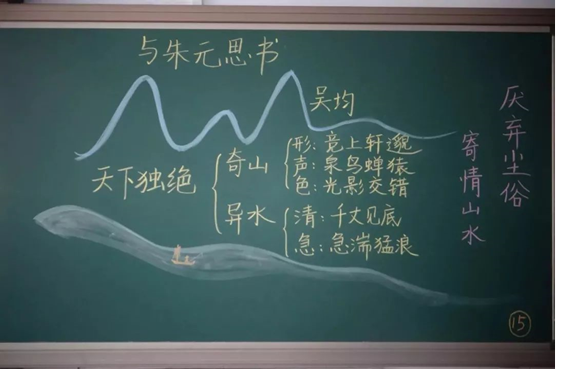 与朱元思书
吴均
天下独绝
奇山
形：竞上轩邈
声：泉鸟蝉猿
色：光影交错
异水
清：千丈见底
急：急湍猛浪
厌弃尘俗
寄情山水
15